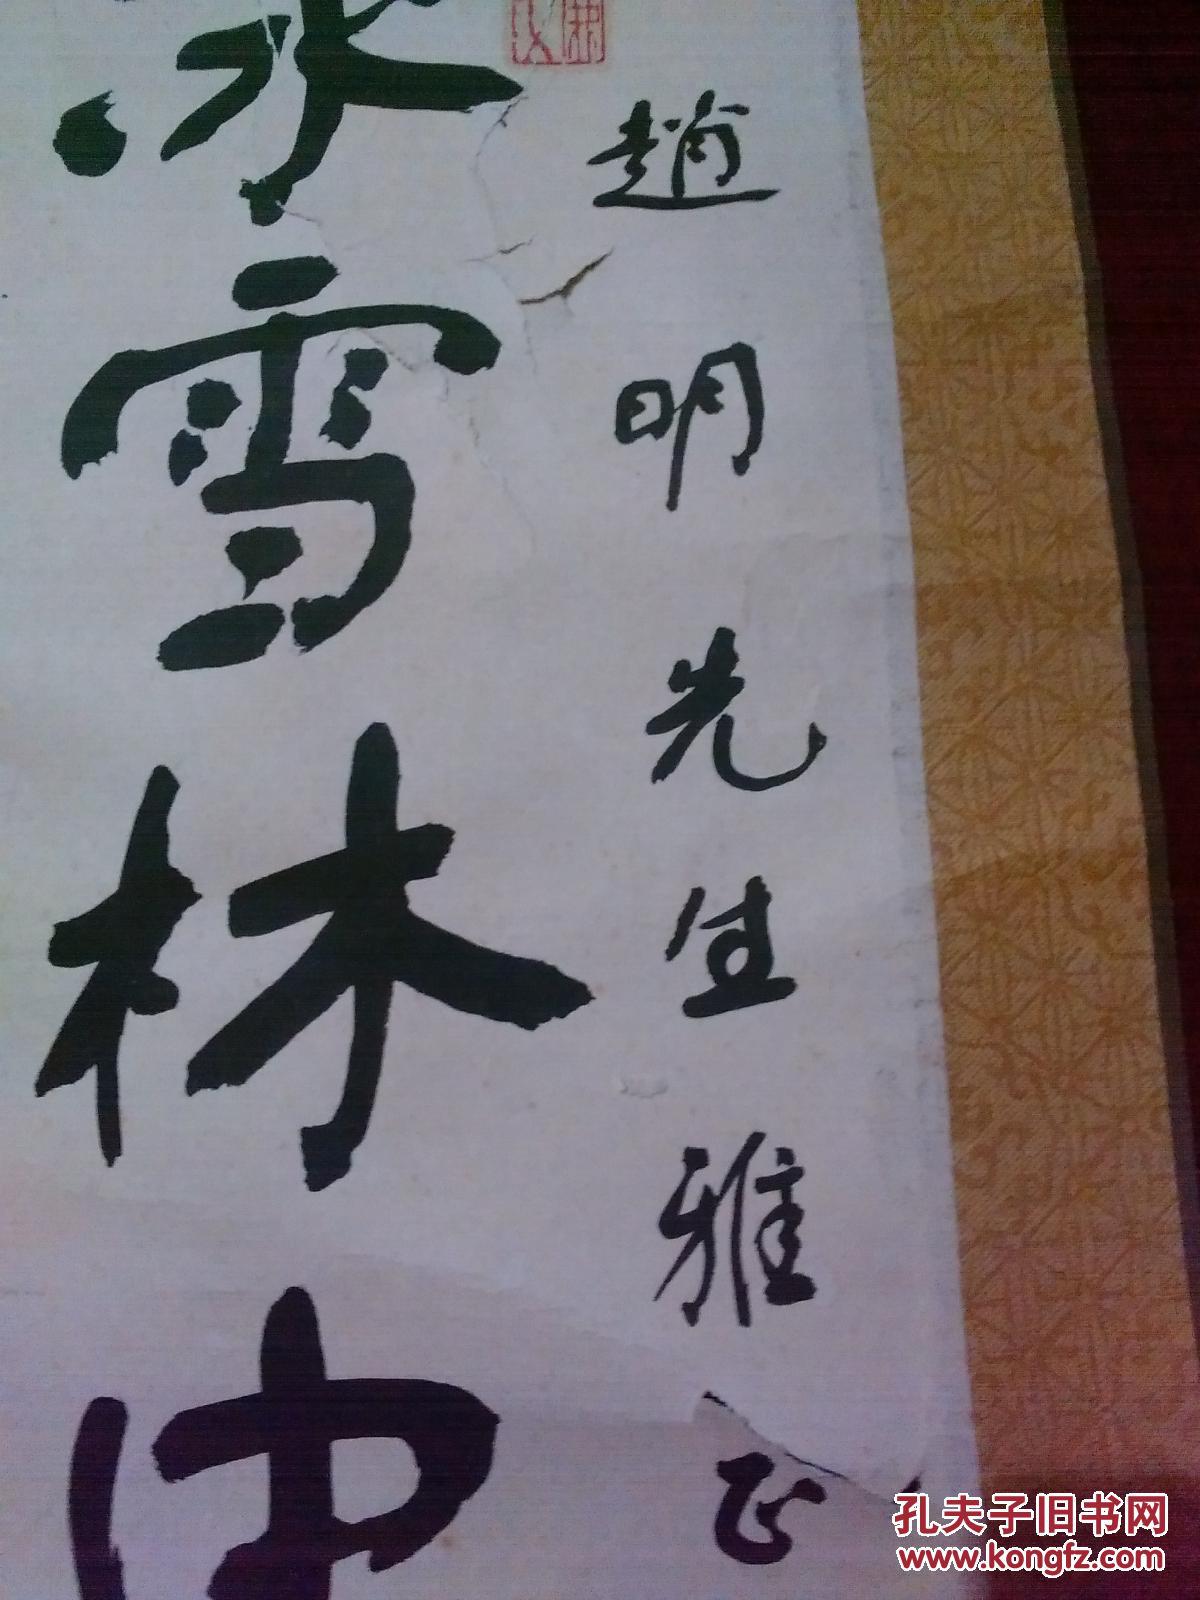 趙明先生雅正
冰雪林中
孔夫子旧书网
www.kongfz.com